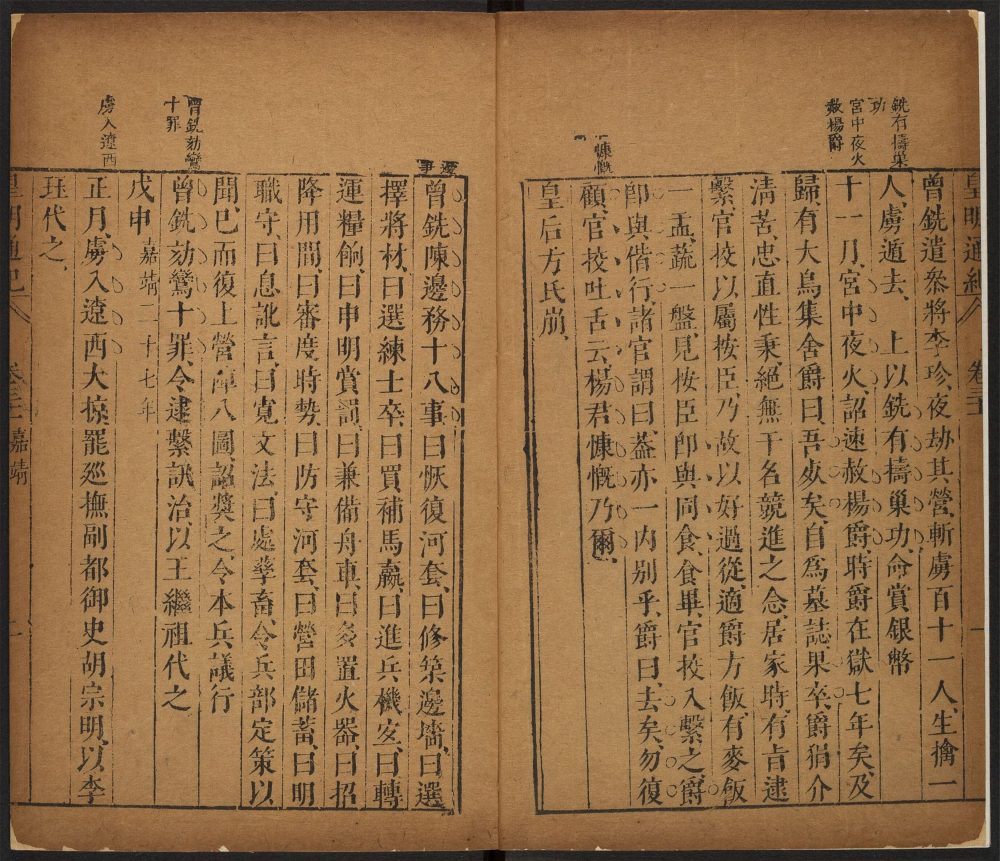 銑有擣巢
功
宮中夜火
赦楊爵
慷慨
皇明通紀
卷三五
一
曾銑遣叅將李珍、夜劫其營、斬虜百十一人、生擒一
人、虜遁去、上以銑有擣巢功、命賞銀幣
十一月、宮中夜火、詔速赦楊爵、時爵在獄七年矣、及
歸、有大鳥集舍、爵曰、吾死矣、自爲墓誌、果卒、爵狷介
淸苦、忠直性秉、絕無干名競進之念、居家時、有旨逮
繫、官校以屬按臣、乃故以好過從、適爵方飯、有麥飯
一盂、蔬一盤、見按臣卽與同食、食畢、官校入繫之、爵
卽與偕行、諸官謂曰、盍亦一內别乎、爵曰、去矣、勿復
顧、官校吐舌云、楊君慷慨乃爾、
皇后方氏崩、
邊事
曾銑劾鸞
十罪
虜入遼西
曾銑陳邊務十八事曰恢復河套、曰修築邊墻、曰選
擇將材、曰選練士卒、曰買補馬羸、曰進兵機宐、曰轉
運糧餉、曰申明賞罰、曰兼備舟車、曰多置火器、曰招
降用間、曰審度時勢、曰防守河套、曰營田儲蓄、曰明
職守、曰息訛言、曰寬文法、曰處孳畜、令兵部定策以
聞、已而復上營陣八圖、詔奬之、令本兵議行
曾銑劾鸞十罪、令逮繫訊治、以王繼祖代之
戊申嘉靖二十七年
正月、虜入遼西大掠、罷巡撫副都御史胡宗明、以李
珏代之、
皇明通紀
嘉靖